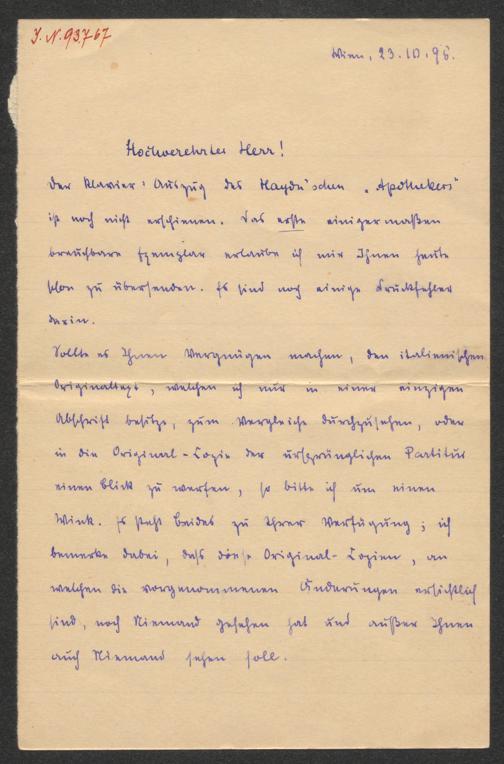 I. N. 93.767
Wien, 23.10.96.
Hochverehrter Herr!
Der Klavier-Auszug des Haydn'schen „Apothekers"
ist noch nicht erschienen. Das erste einigermaßen
brauchbare Exemplar erlaube ich mir Ihnen heute
schon zu übersenden. Es sind noch einige Druckfehler
darin.
Sollte es Ihnen Vergnügen machen, den italienischen
Originaltext, welchen ich nur in einer einzigen
Abschrift besitze, zum Vergleiche durchzusehen, oder
in die Original-Copie der ursprünglichen Partitur
einen Blick zu werfen, so bitte ich um einen
Wink. Es steht beides zu Ihrer Verfügung; ich
bemerke dabei, daß diese Original-Copien, an
welchen die vorgenommenen Änderungen ersichtlich
sind, noch Niemand gesehen hat und außer Ihnen
auch Niemand sehen soll.